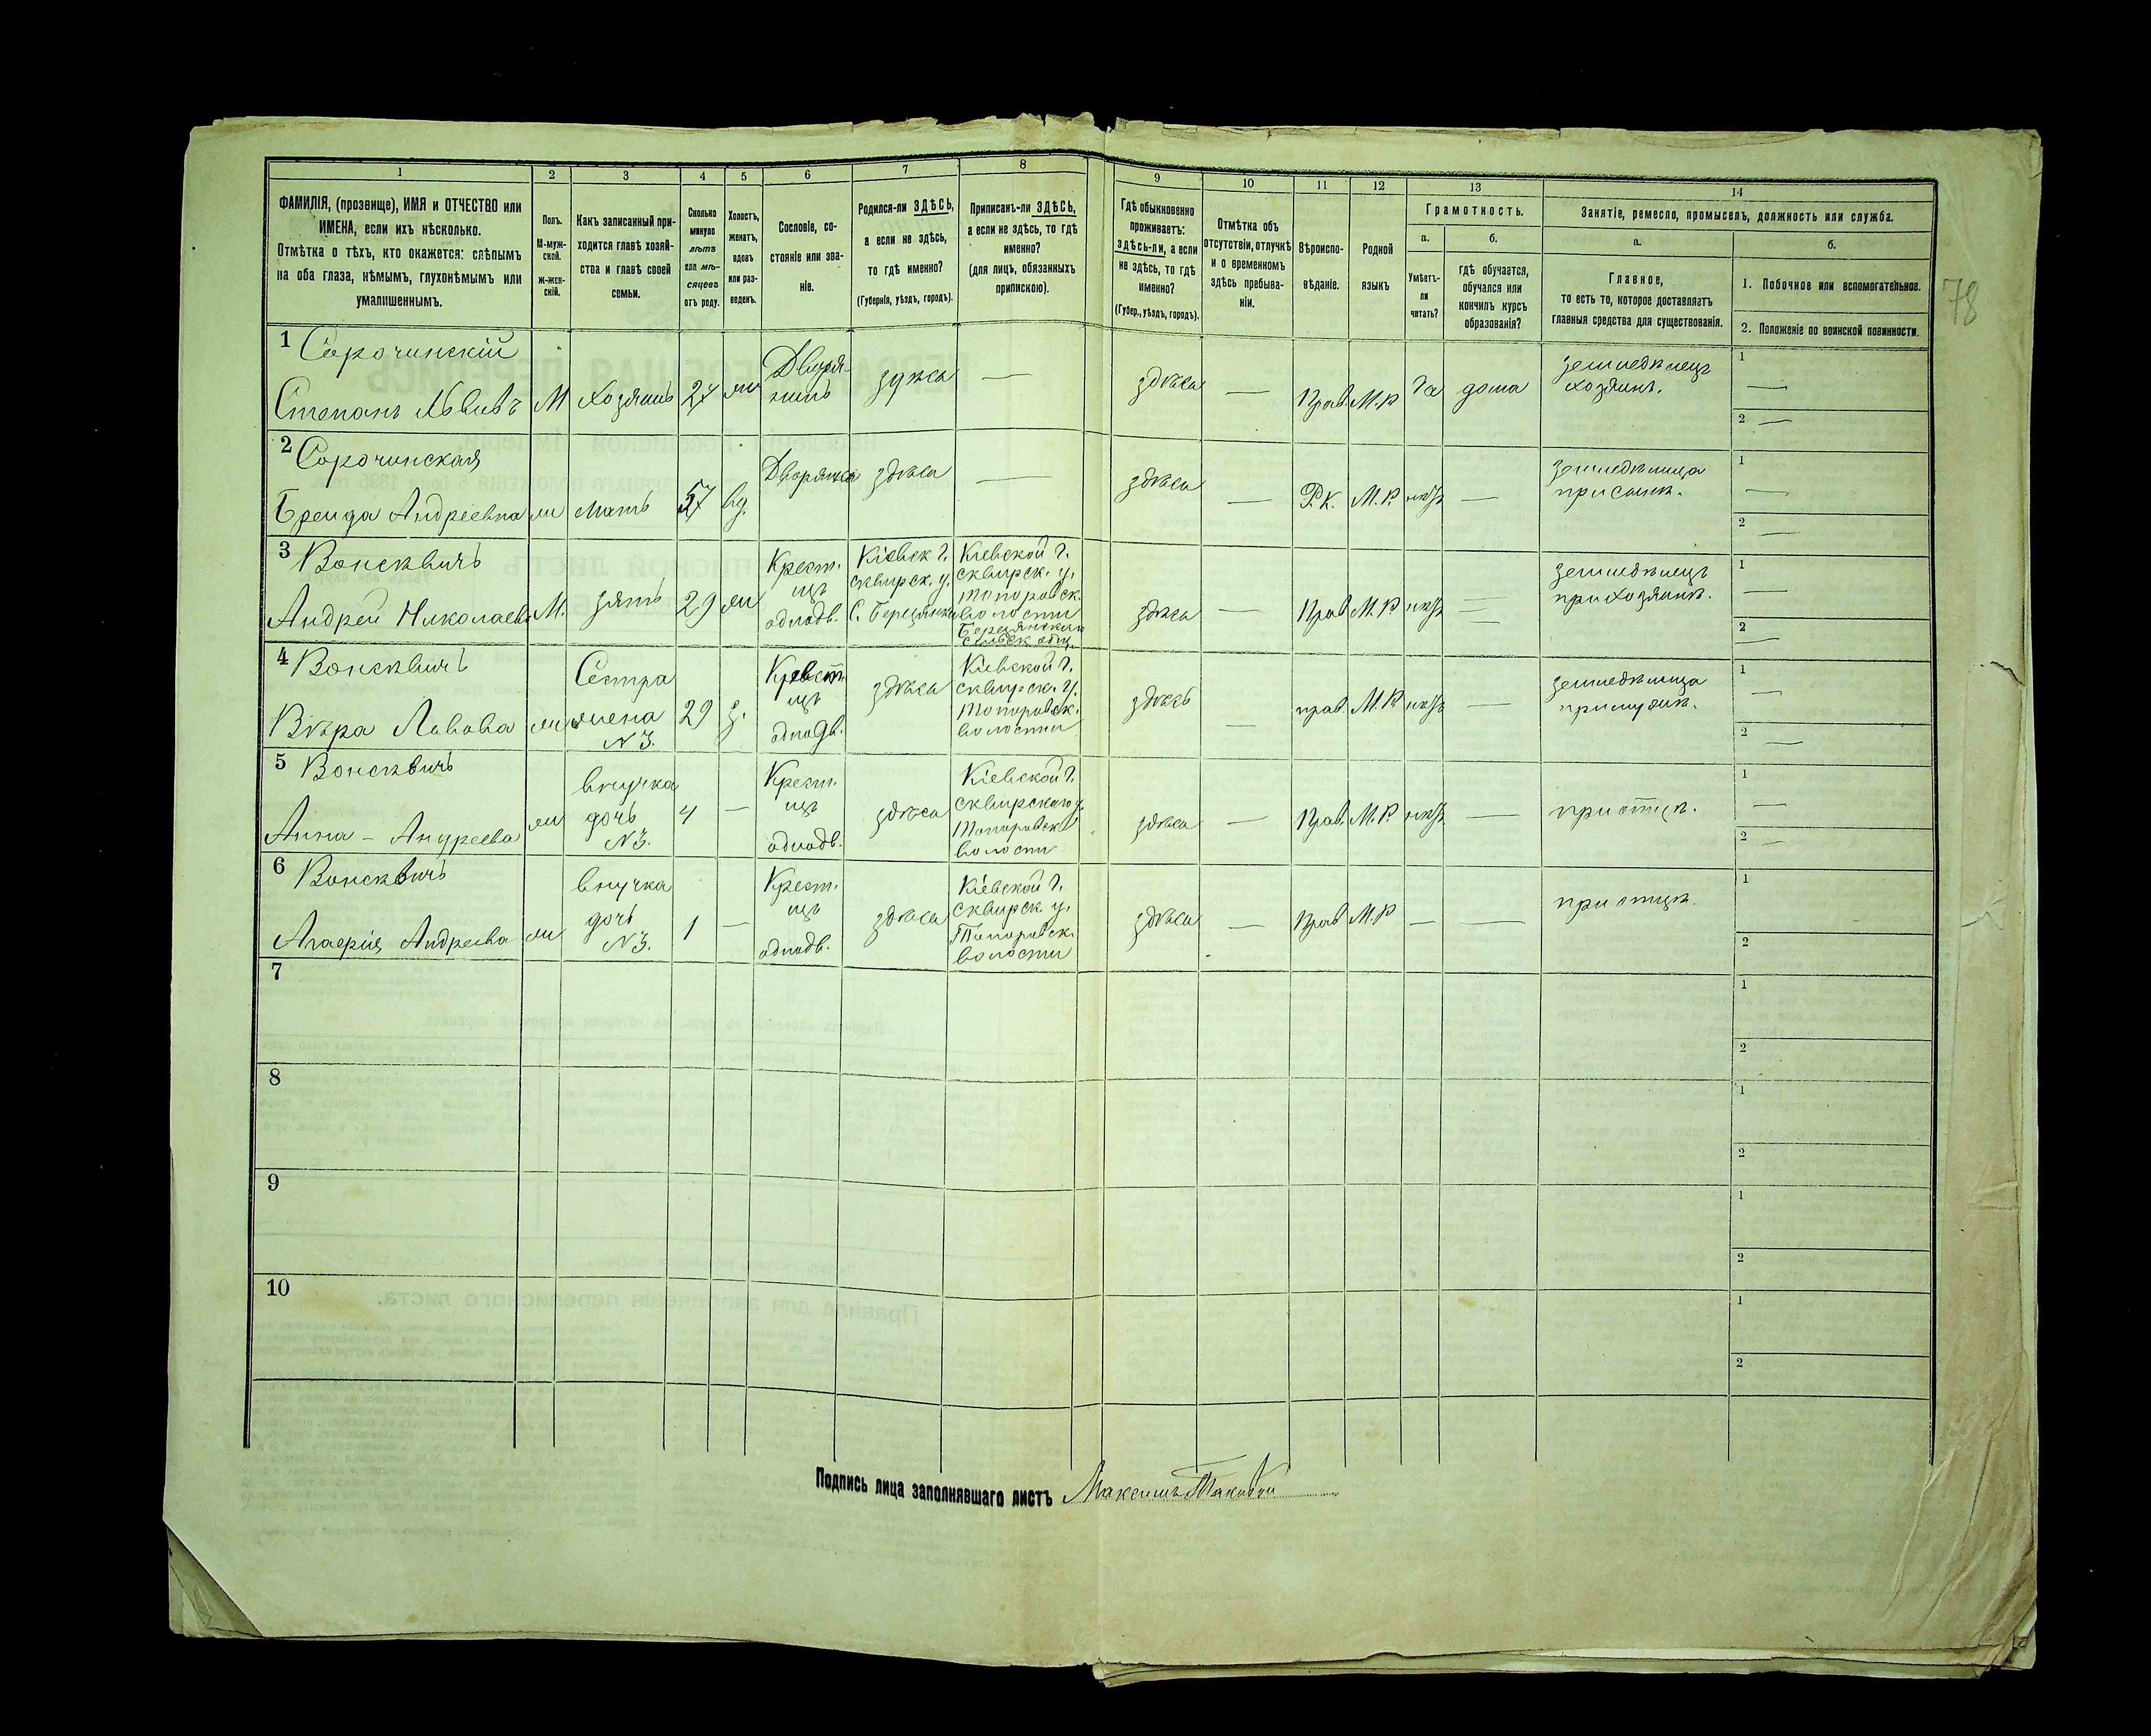 1
2
3
4
5
6
7
8
9
10
11
12
13
14
ФАМИЛІЯ, (прозвище), ИМЯ и ОТЧЕСТВО или
ИМЕНА, если ихъ нѣсколько.
Отмѣтка о тѣхъ, кто окажется: слѣпымъ
на оба глаза, нѣмымъ, глухонѣмымъ или
умалишеннымъ.
Полъ.
М-муж-
ской.
Ж-жен-
скій.
Какъ записанный при-
ходится главѣ хозяй-
ства и главѣ своей
семьи.
Сколько
минуло
лѣтъ
или мѣ-
сяцевъ
отъ роду.
Холостъ,
женатъ,
вдовъ
или раз-
веденъ.
Сословіе, со-
стояніе или зва-
ніе.
Родился-ли ЗДѢСЬ,
а если не здѣсь,
то гдѣ именно?
(Губернія, уѣздъ, городъ).
Приписанъ-ли ЗДѢСЬ,
а если не здѣсь, то гдѣ
именно?
(для лицъ, обязанныхъ
припискою).
Гдѣ обыкновенно
проживаетъ:
здѣсь-ли, а если
не здѣсь, то гдѣ
именно?
(Губер., уѣздъ, городъ).
Отмѣтка объ
отсутствіи, отлучкѣ
и о временномъ
здѣсь пребыва-
ніи.
Вѣроиспо-
вѣданіе.
Родной
языкъ
Грамотность.
а.
Умѣетъ-
ли
читать?
б.
гдѣ обучается,
обучался или
кончилъ курсъ
образованія?
Занятіе, ремесло, промыселъ, должность или служба.
а.
Главное,
то есть то, которое доставляетъ
главныя средства для существованія.
б.
1. Побочное или вспомогательное.
2. Положеніе по воинской повинности.
78
1 Сорочинскій
Степанъ Львовъ М Хозяинъ 27 Дворя-
нинъ здѣсь — здѣсь — Прав. М.Р да дома земледѣлецъ
хозяинъ.
1 —
2 —
2 Сорочинская
Андреевна ж мать 57 вд. Дворянка здѣсь — здѣсь — Р.К. М.Р. нѣтъ — земледѣлица
при сынѣ.
1 —
2 —
3 Вонсквичъ
Андрей Николаев М. зять 29 жн Крест.
изъ
однодв. Кіевск г.
сквирск. у.
С. Березянка Кіевской г.
сквирск. у.
топоровск.
волости
здѣсь — Прав М.Р нѣтъ — земледѣлецъ
при хозяинѣ.
1 —
2 —
4 Вонсквичъ
Вѣра Львова ж Сестра
жена
N 3. 29 з. Крест
изъ
однодв. здѣсь Кіевской г.
сквирск. у.
Топоровск.
волости здѣсь — прав М.Р нѣтъ — земледѣлица
при мужѣ.
1 —
2 —
5 Вонсквичъ
Анна - Андреева ж внучка
дочь
N 3. 4 — Крест.
изъ
однодв. здѣсь Кіевской г.
сквирскаго у.
Топоровск
волости здѣсь — Прав. М.Р. нѣтъ — при отцѣ.
1 —
2 —
6 Вонсквичъ
Андреева ж внучка
дочь
N 3. 1 — Крест.
изъ
однодв. здѣсь Кіевской г.
сквирск у.
Топоровск.
волости здѣсь — Прав М.Р — — при отцѣ.
1
2
7
1
2
8
1
2
9
1
2
10
1
2
Подпись лица заполнявшаго листъ Максимъ